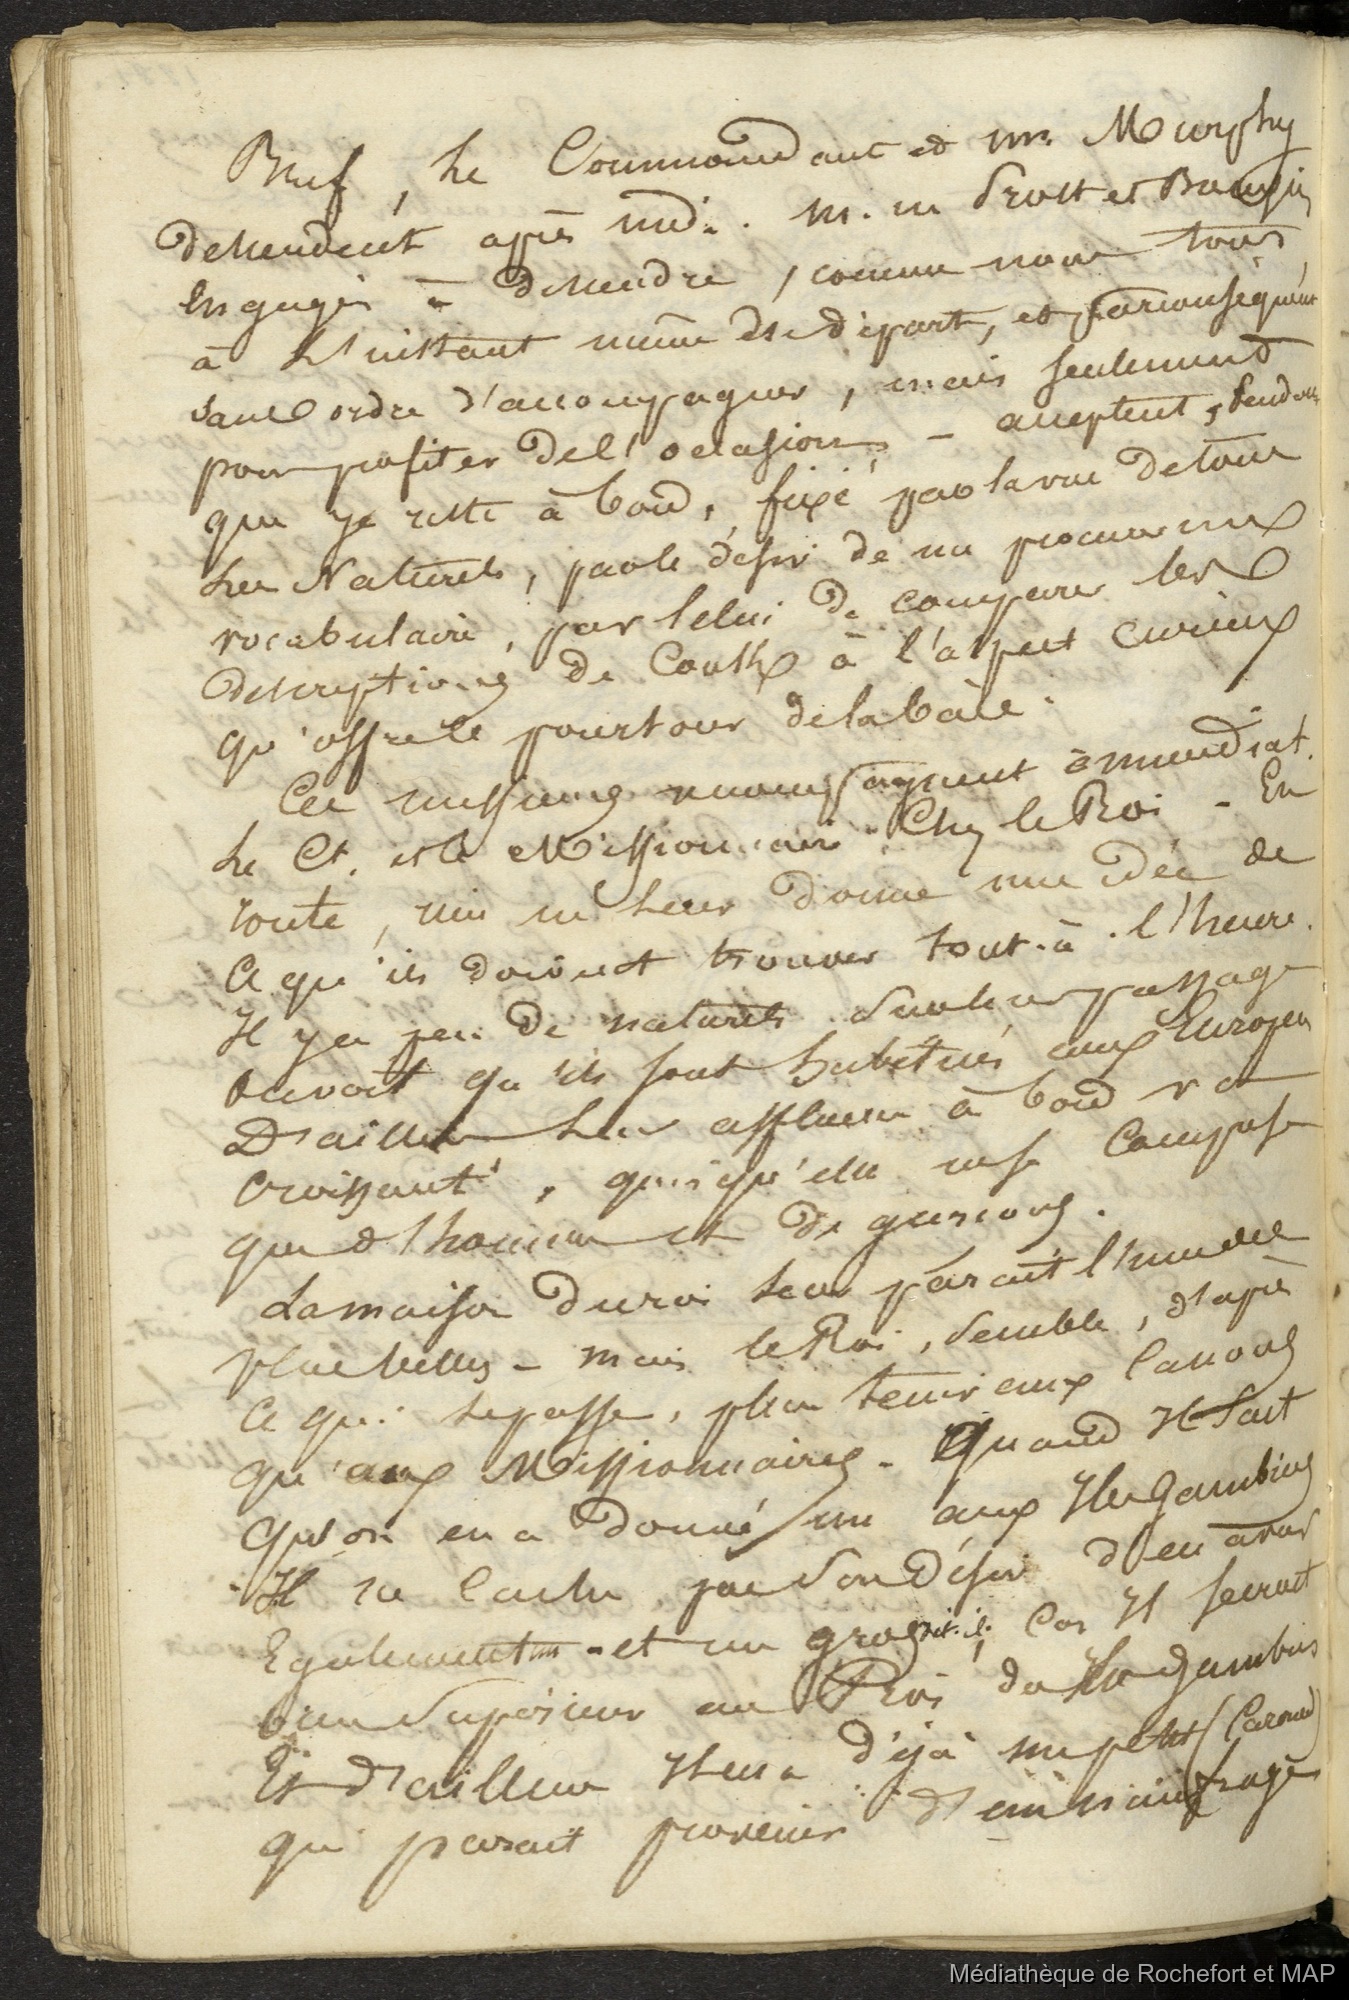 Bref, le Commandant et mr. Murphy
descendent après midi. M. m Prost et Bourgin
engagés à descendre, comme nous tous,
à l'instant même du départ, et parconséquent
sans ordre d'accompagner, mais seulement
pour profiter de l'occasion, - acceptent, pendant
que je reste à bord, fixé par la vue de tous
les Naturels, par le désir de me procurer un
vocabulaire, par celui de comparer les
descriptions de Cook à l'aspect curieux
qu'offre le pourtour de la baie.
Ces messieurs accompagnent immédiat.
le Ct. et le Missionnaire chez le Roi - En
route, rien ne leur donne une idée de
ce qu'ils doivent trouver tout-à-l'heure.
Il y a peu de naturels sur leur passage
on voit qu'ils sont habitués aux Europens
D'ailleurs leur affluence à bord va
croissant, quoiqu'elle ne se compose
que d'hommes et de garçons.
La maison du roi leur parait l'une des
plus belles - mais le Roi, semble, d'après
ce qui se passe, plus tenir aux Canons
qu'aux Missionnaires - Quand Il sait
qu'on en a donné un aux Iles Gambier
Il ne cache pas son désir d'en avoir
Egalement un - et un gros, dit-il, Car Il serait
bien supérieur au Roi des Iles Gambier
Et d'ailleurs Il en a déjà un petit (Caronade)
qui parait provenir d'un naufrage
Médiathèque de Rochefort et MAP